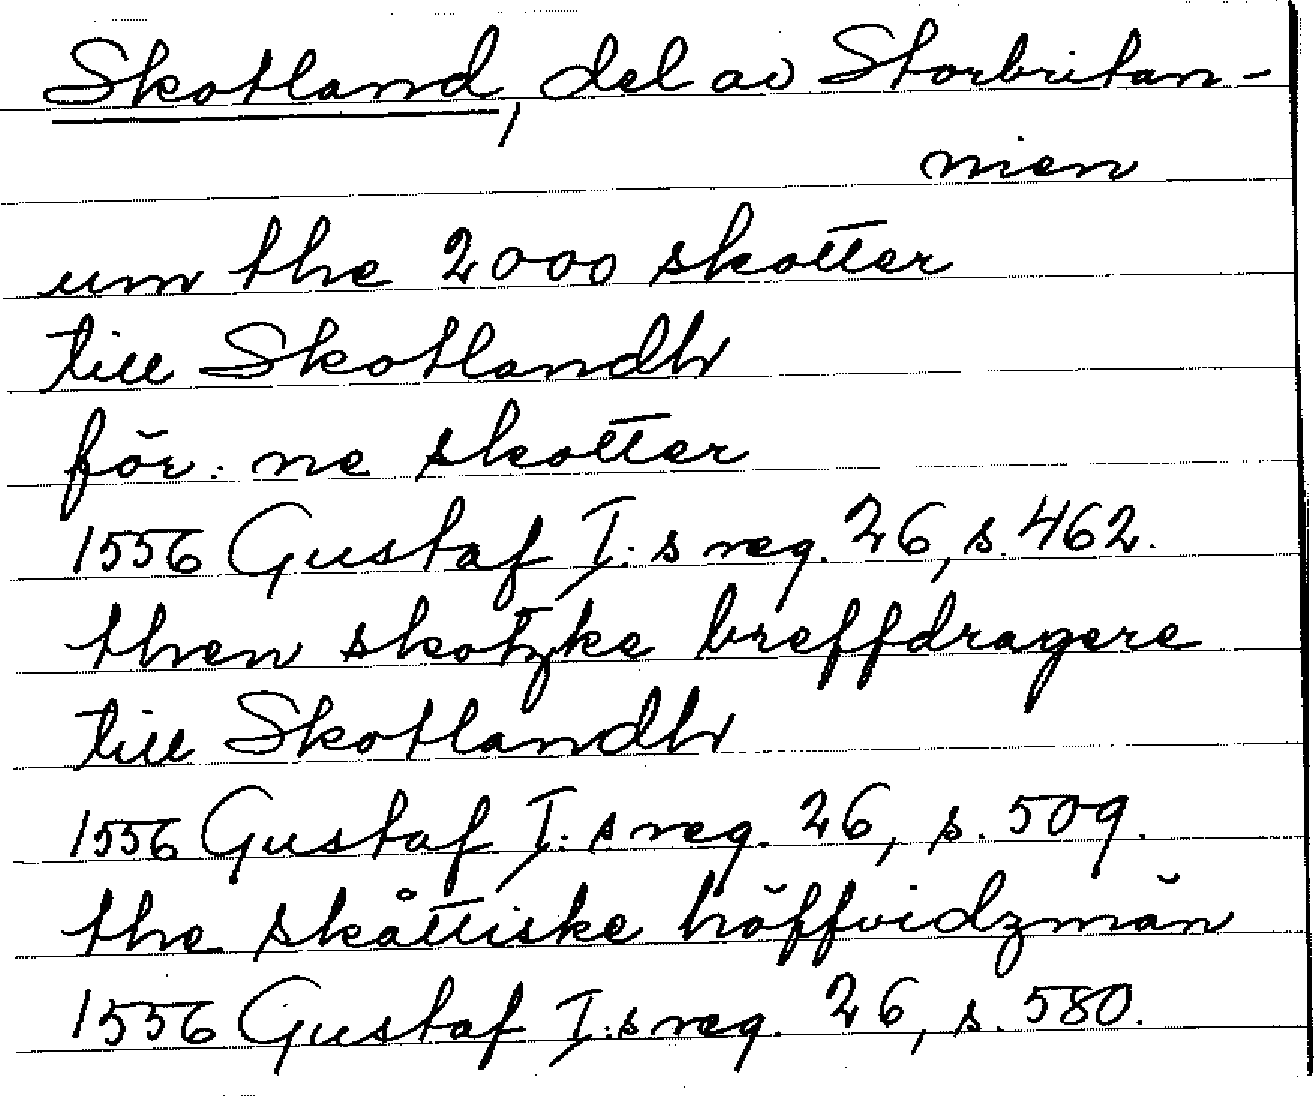 Skotland, del av Storbritan-
nien
um the 2000 skotter
till Skotlandh
för: ne skotter
1556 Gustaf I:s reg. 26, s. 462.
then skotzke breffdragere
till Skotlandh
1556 Gustaf I:s reg. 26, s. 509.
the skåttiske höffvidzmän
1556 Gustaf I:s reg. 26, s. 580.